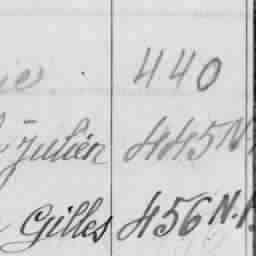 440
Julien 445 N.
Gilles 456 N.